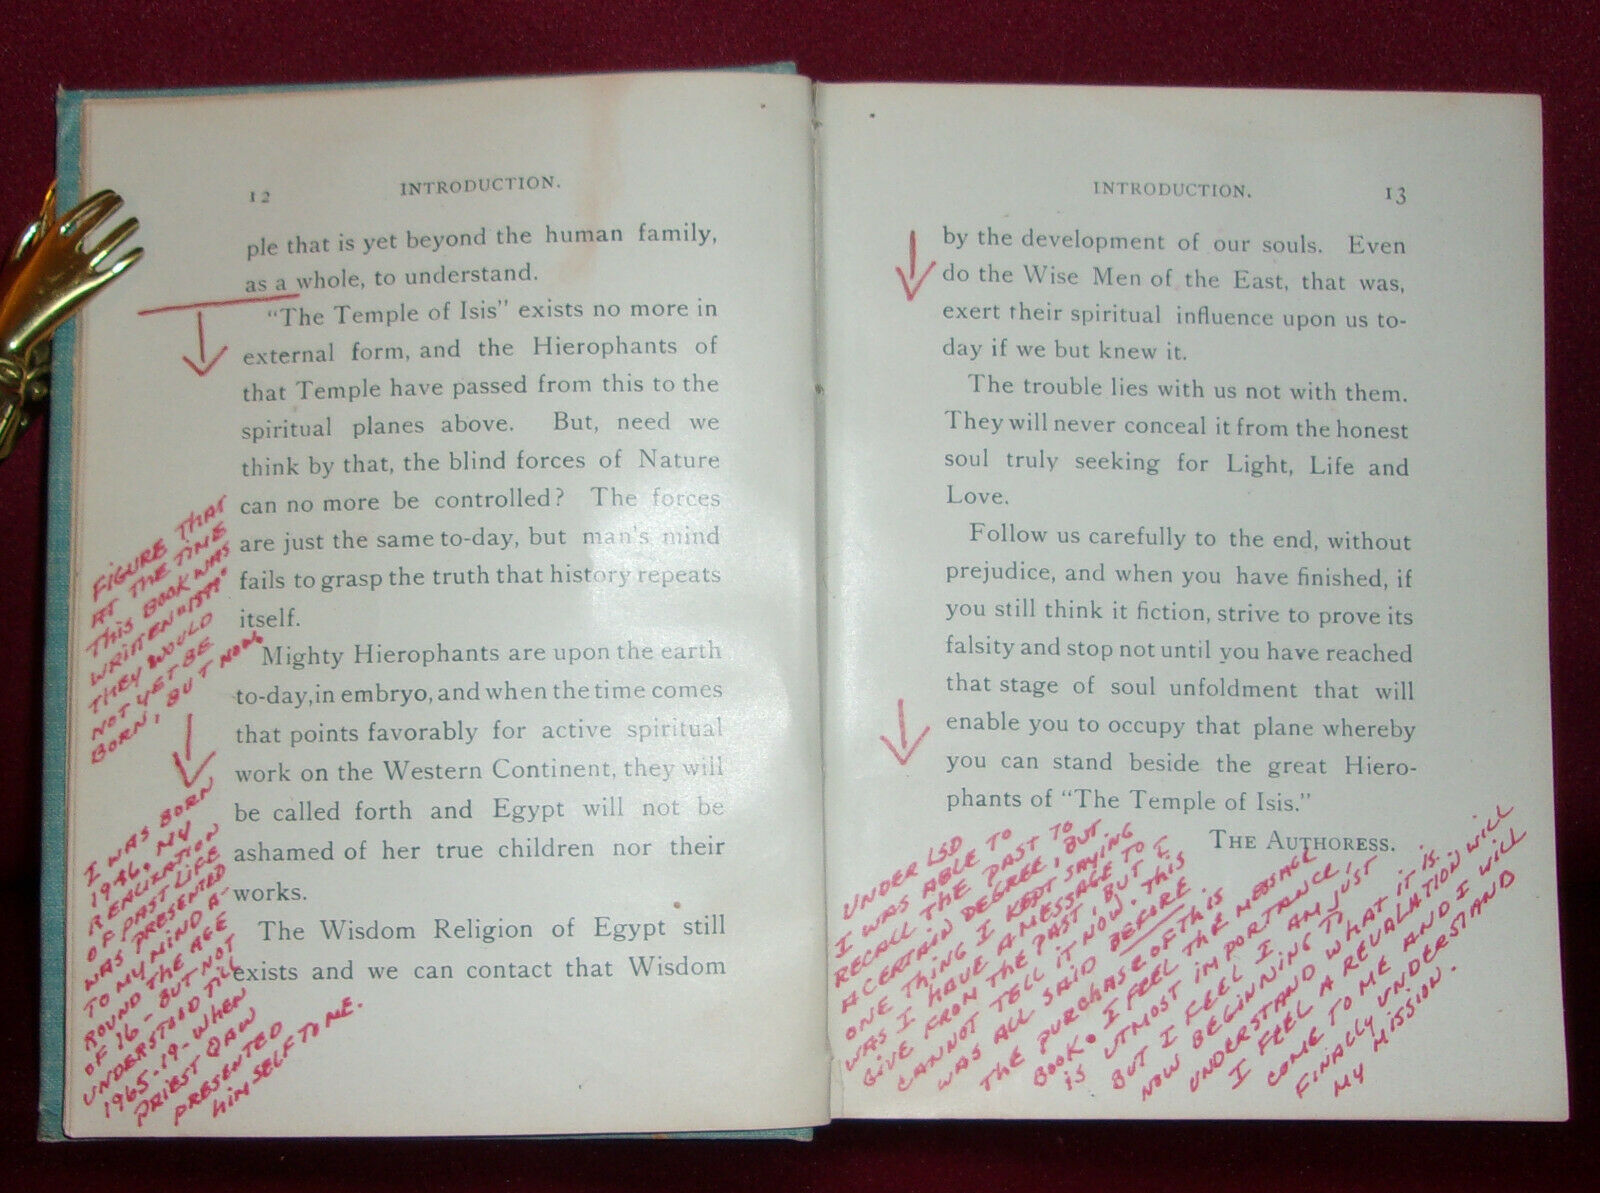 12 INTRODUCTION.
ple that is yet beyond the human family,
as a whole, to understand.
"The Temple of Isis" exists no more in
external form, and the Hierophants of
that Temple have passed from this to the
spiritual planes above. But, need we
think by that, the blind forces of Nature
can no more be controlled? The forces
are just the same to-day, but man's mind
fails to grasp the truth that history repeats
itself.
Mighty Hierophants are upon the earth
to-day, in embryo, and when the time comes
that points favorably for active spiritual
work on the Western Continent, they will
be called forth and Egypt will not be
ashamed of her true children nor their
works.
The Wisdom Religion of Egypt still
exists and we can contact that Wisdom
FIGURE THAT
AT THE TIME
THIS BOOK WAS
WRITTEN "1899"
THEY WOULD
NOT YET BE
BORN, BUT NOW.
I WAS BORN
1946. MY
REALIZATION
OF PAST LIFE
WAS PRESENTED
TO MY MIND A-
ROUND THE AGE
OF 16 - BUT NOT
UNDERSTOOD TILL
1965-19-WHEN
PRIEST QAW
PRESENTED
HIMSELF TO ME.
INTRODUCTION. 13
by the development of our souls. Even
do the Wise Men of the East, that was,
exert their spiritual influence upon us to-
day if we but knew it.
The trouble lies with us not with them.
They will never conceal it from the honest
soul truly seeking for Light, Life and
Love.
Follow us carefully to the end, without
prejudice, and when you have finished, if
you still think it fiction, strive to prove its
falsity and stop not until you have reached
that stage of soul unfoldment that will
enable you to occupy that plane whereby
you can stand beside the great Hiero-
phants of "The Temple of Isis."
THE AUTHORESS.
UNDER LSD
I WAS ABLE TO
RECALL THE PAST TO
A CERTAIN DEGREE, BUT
ONE THING I KEPT SAYING
WAS I HAVE A MESSAGE TO
GIVE FROM THE PAST, BUT I
CANNOT TELL IT NOW. THIS
WAS ALL SAID BEFORE
THE PURCHASE OF THIS
BOOK. I FEEL THE MESSAGE
IS UTMOST IMPORTANCE,
BUT I FEEL I AM JUST
NOW BEGINNING TO
UNDERSTAND WHAT IT IS.
I FEEL A REVALATION WILL
COME TO ME AND I WILL
FINALLY UNDERSTAND
MY MISSION.